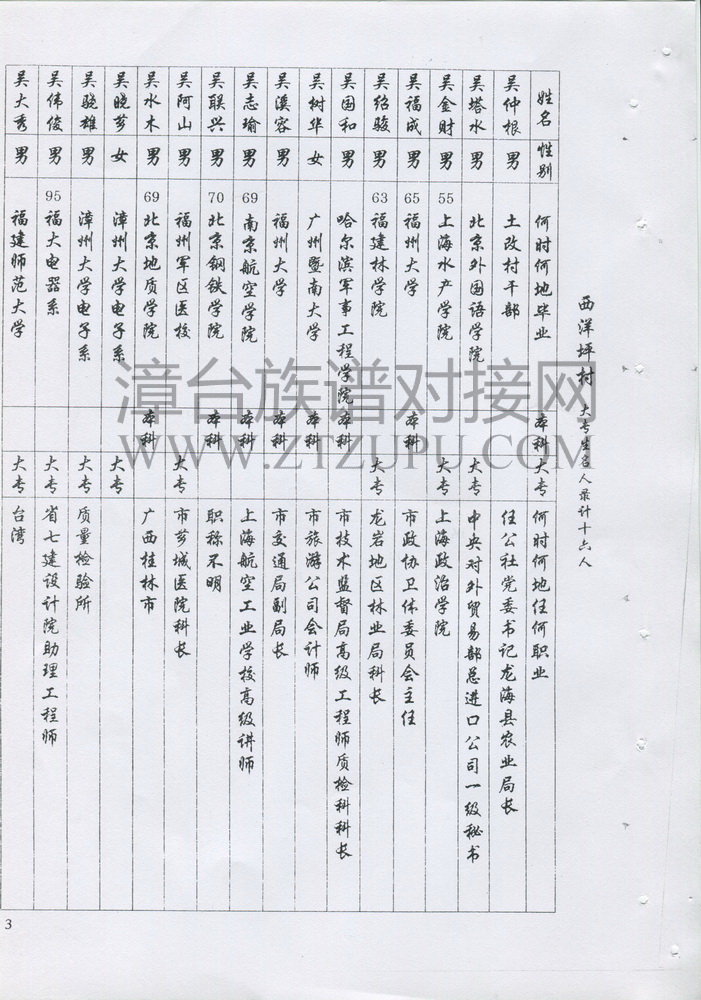 西洋坪村 大专生名人录计十六人
姓名 性别 何时何地毕业 本科 大专 何时何地任何职业
吴仲根 男 土改村干部 任公社党委书记龙海县农业局长
吴塔水 男 北京外国语学院 大专 中央对外贸易部总进口公司一级秘书
吴金财 男 55 上海水产学院 大专 上海政治学院
吴福成 男 65 福州大学 本科 市政协卫体委员会主任
吴绍骏 男 63 福建林学院 大专 龙岩地区林业局科长
吴国和 男 哈尔滨军事工程学院 本科 市技术监督局高级工程师质检科科长
吴树华 女 广州暨南大学 本科 市旅游公司会计师
吴溪容 男 福州大学 本科 市交通局副局长
吴志瑜 男 69 南京航空学院 本科 上海航空工业学校高级讲师
吴联兴 男 70 北京钢铁学院 本科 职称不明
吴阿山 男 福州军区医校 大专 市芗城医院科长
吴水木 男 69 北京地质学院 本科 广西桂林市
吴晓芗 女 漳州大学电子系 大专
吴晓雄 男 漳州大学电子系 大专 质量检验所
吴伟俊 男 95 福大电器系 大专 省七建设计院助理工程师
吴大秀 男 福建师范大学 大专 台湾
3
漳台族谱对接网
WWW.ZTZUPU.COM